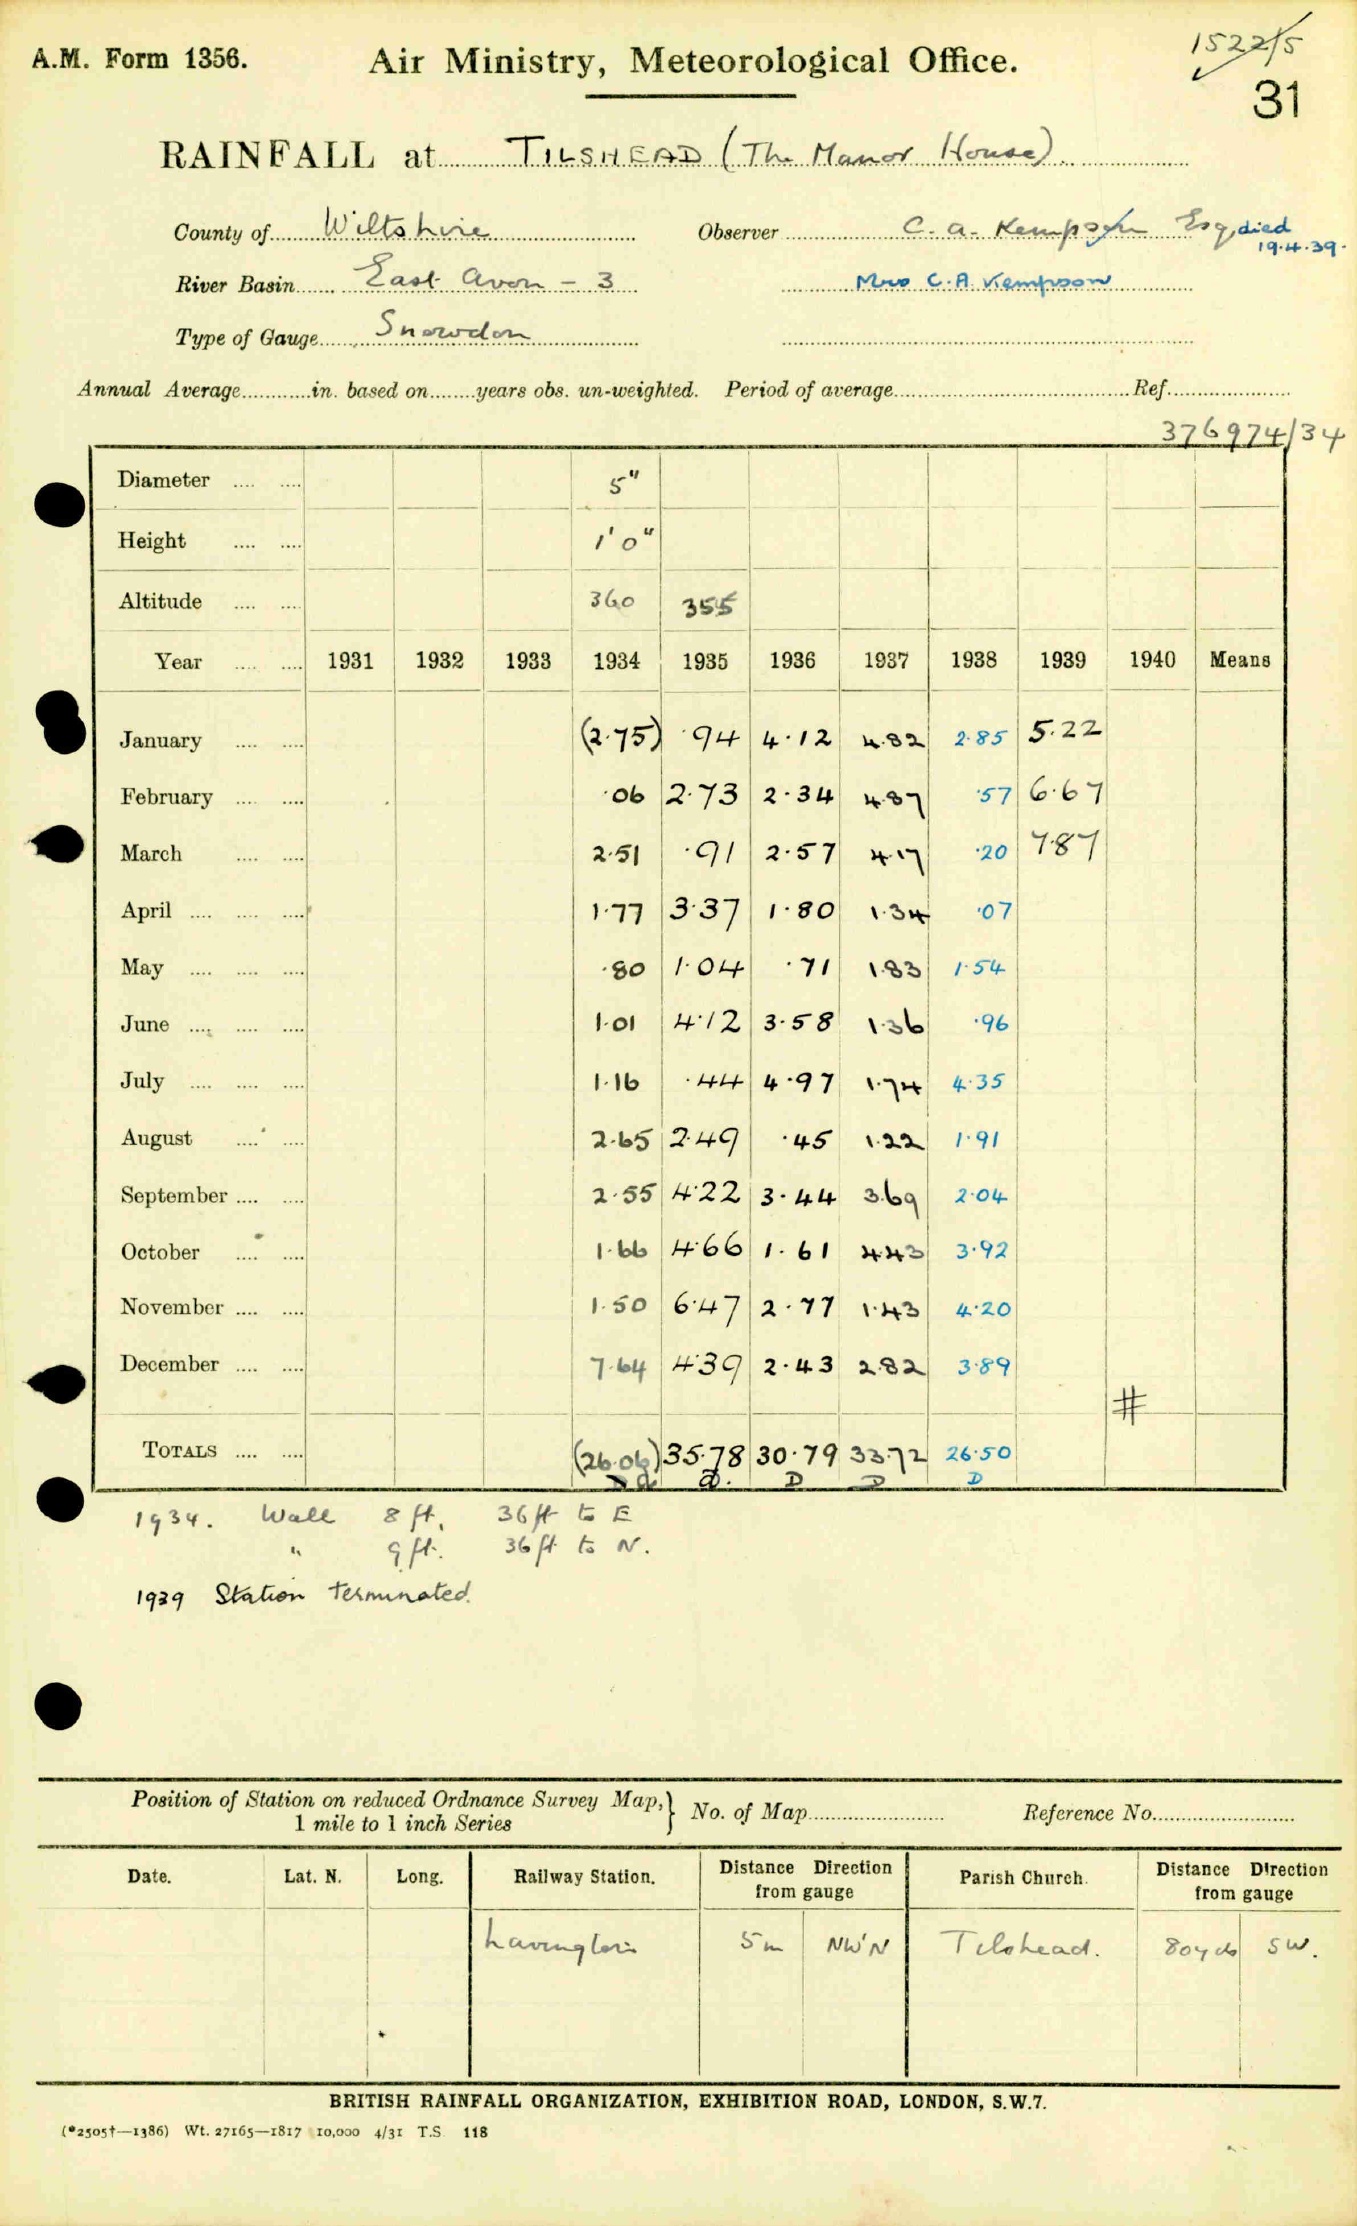 A.M. Form 1356. Air Ministry, Meteorological Office. 1522/5
31
RAINFALL at TILSHEAD (The Manor House).
County of Wiltshire Observer C. A. Kempson Esq died
19.4.39.
River Basin East Avon – 3 Mrs C. A. Kempson
Type of Gauge Snowdon
Annual Average............in. based on........years obs. un-weighted. Period of average............Ref............
376974/34
Diameter .... .... 5"
Height .... .... 1' 0"
Altitude .... .... 360 355
Year .... .... 1931 1932 1933 1934 1935 1936 1937 1938 1939 1940 Means
January .... .... (2.75) .94 4.12 4.82 2.85 5.22
February .... .... .06 2.73 2.34 4.87 .57 6.67
March .... .... 2.51 .91 2.57 4.17 .20 7.87
April .... .... .... 1.77 3.37 1.80 1.34 .07
May .... .... .... .80 1.04 .71 1.83 1.54
June .... .... .... 1.01 4.12 3.58 1.36 .96
July .... .... .... 1.16 .44 4.97 1.74 4.35
August .... .... 2.65 2.49 .45 1.22 1.91
September .... .... 2.55 4.22 3.44 3.69 2.04
October .... .... 1.66 4.66 1.61 4.43 3.92
November .... .... 1.50 6.47 2.77 1.43 4.20
December .... .... 7.64 4.39 2.43 2.82 3.89
#
TOTALS .... .... (26.06) 35.78 30.79 33.72 26.50
d. D D D
1934. Wall 8 ft. 36 ft to E
" 9 ft. 36 ft to N.
1939 Station terminated.
Position of Station on reduced Ordnance Survey Map,} No. of Map............ Reference No............
1 mile to 1 inch Series
Date. Lat. N. Long. Railway Station. Distance Direction Parish Church. Distance Direction
from gauge from gauge
Lavington 5 m NW'N Tilshead. 80 yds SW.
BRITISH RAINFALL ORGANIZATION, EXHIBITION ROAD, LONDON, S.W.7.
(*2505†—1386) Wt. 27165—1817 10,000 4/31 T.S. 118